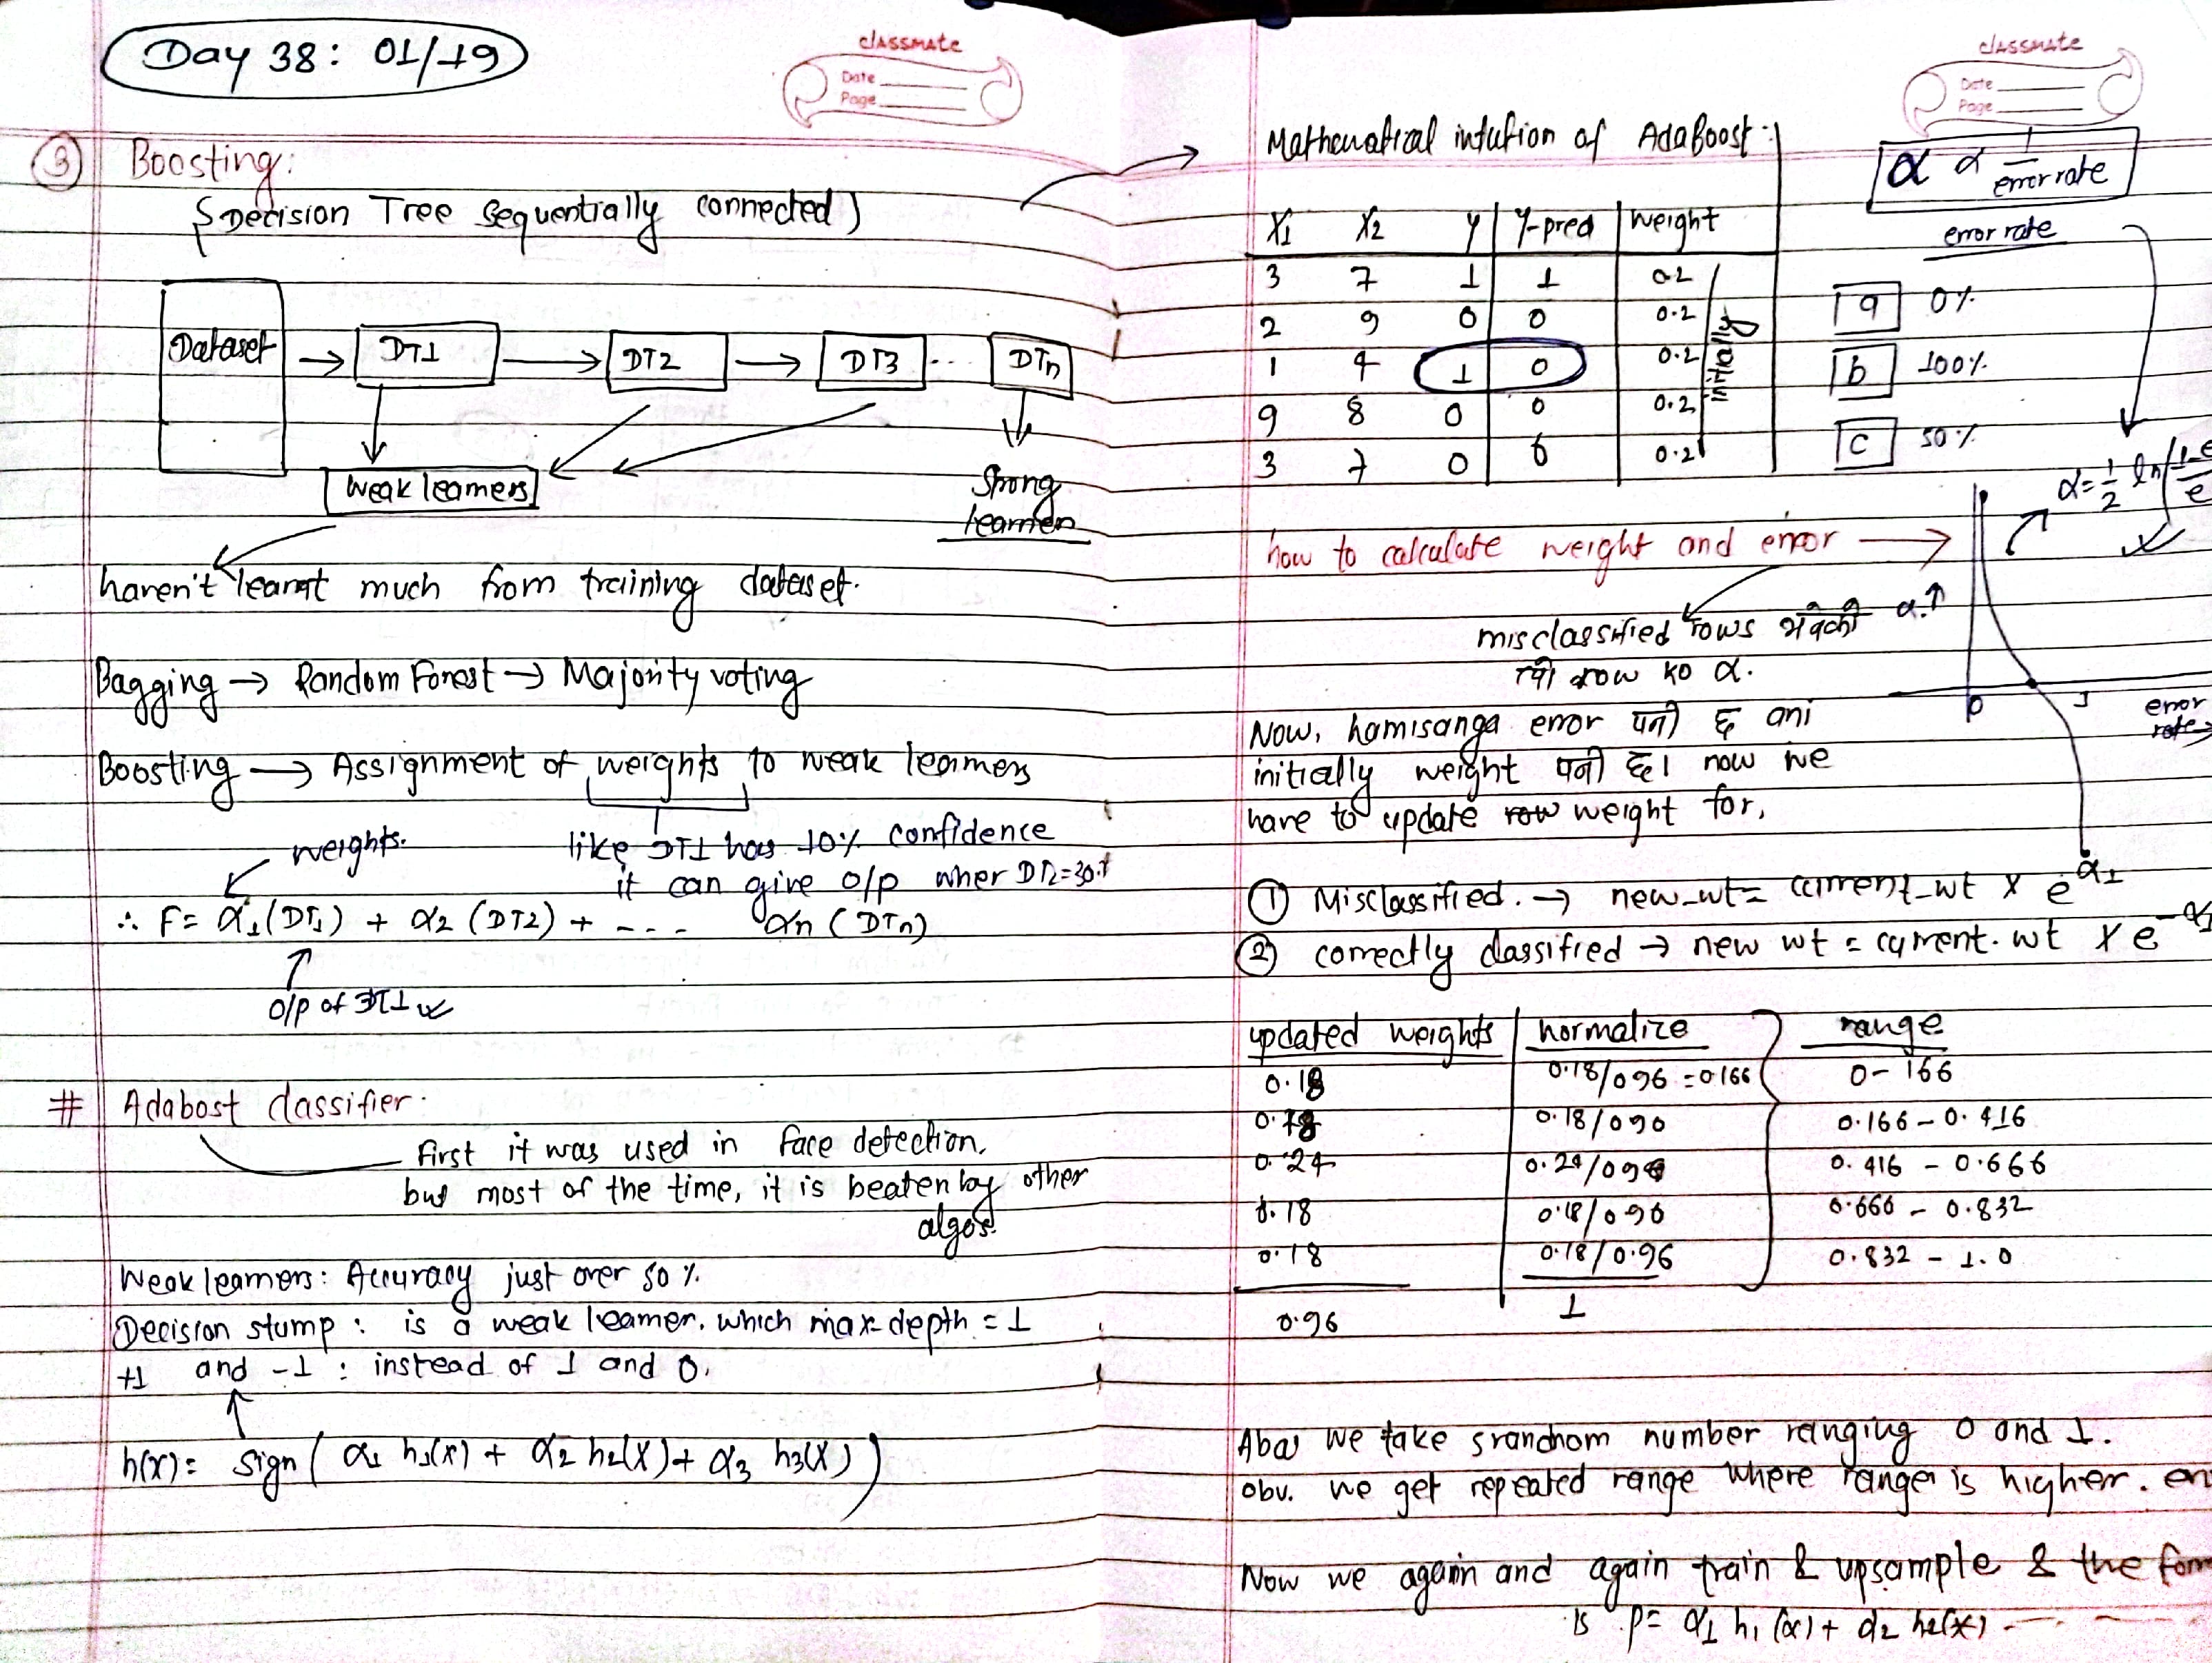 Day 38: 01/19
classmate
Date
Page
③ Boosting:
{Decision Tree sequentially connected}
Dataset → DT1 → DT2 → DT3 ... DTn
weak learners
Strong
learner
haven't learnt much from training dataset.
Bagging → Random Forest → Majority voting
Boosting → Assignment of weights to weak learners
weights.
like DT1 has 10% confidence
it can give o/p wher DT2=30%
∴ F= α1(DT1) + α2 (DT2) + --- αn (DTn)
o/p of DT1
# Adabost classifier.
first it was used in face detection.
but most of the time, it is beaten by other
algos.
Weak learners: Accuracy just over 50 %.
Decision stump : is a weak learner. which max-depth = 1
+1 and -1 : instead of 1 and 0.
h(x)= sign ( α1 h1(x) + α2 h2(x) + α3 h3(x) )
classmate
Date
Page
Mathematical intution of AdaBoost:
α α 1/error rate
X1 X2 y y-pred weight
3 7 1 1 0.2
2 9 0 0 0.2
1 4 1 0 0.2
9 8 0 0 0.2
3 7 0 0 0.2
initially
error rate
a 0%
b 100%
c 50%
α = 1/2 ln(1-e/e
how to calculate weight and error →
misclassified rows
row ko α.
α↑
0 1 error
rate→
Now, hamisanga error पनी छ ani
initially weight पनी छ। now we
have to update row weight for,
① Misclassified. → new_wt= current_wt x e^α1
② correctly classified → new wt = current. wt x e^-α1
updated weights normalize range
0.18 0.18/096 =0166 0- 166
0.18 0.18/096 0.166 - 0.416
0.24 0.24/096 0.416 - 0.666
0.18 0.18/096 0.666 - 0.832
0.18 0.18/0.96 0.832 - 1.0
0.96 1
Aba we take srandnom number ranging 0 and 1.
obv. we get repeated range where range is higher.
Now we again and again train & upsample & the form
is p= α1 h1 (x) + α2 h2(x) ---